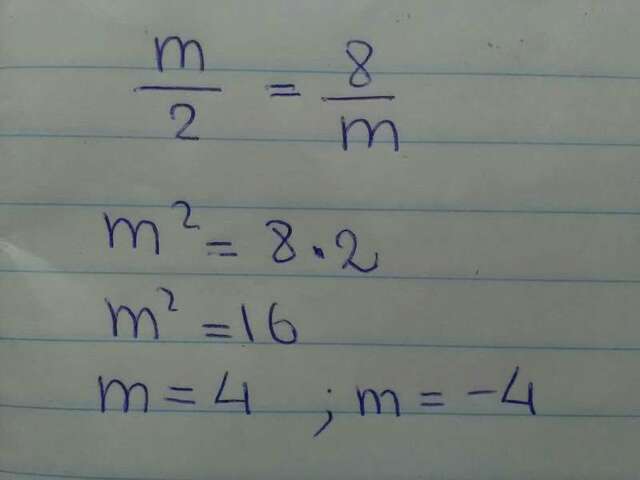 m/2 = 8/m
m² = 8·2
m² = 16
m = 4 ; m = -4